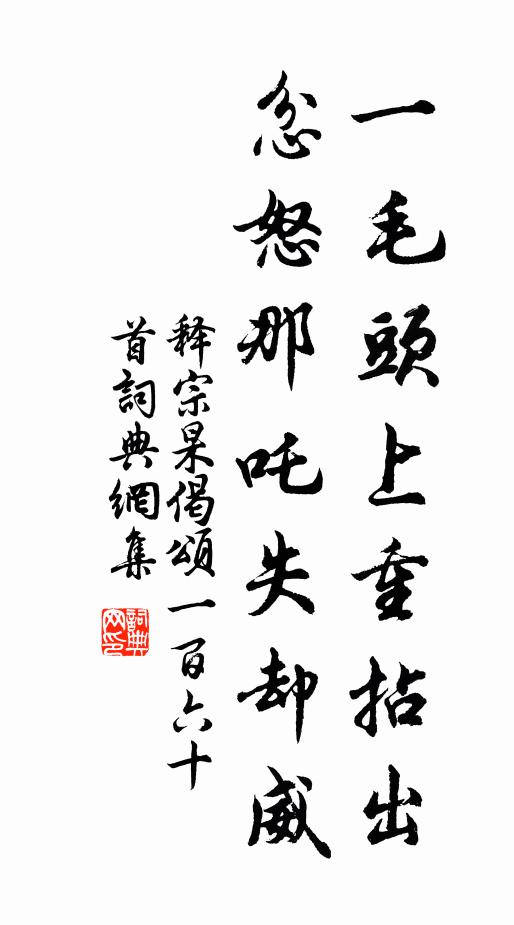 一毛頭上重拈出
忿怒那吒失却威
释宗杲偈頌一百六十
首詞典網集
詞典
网印